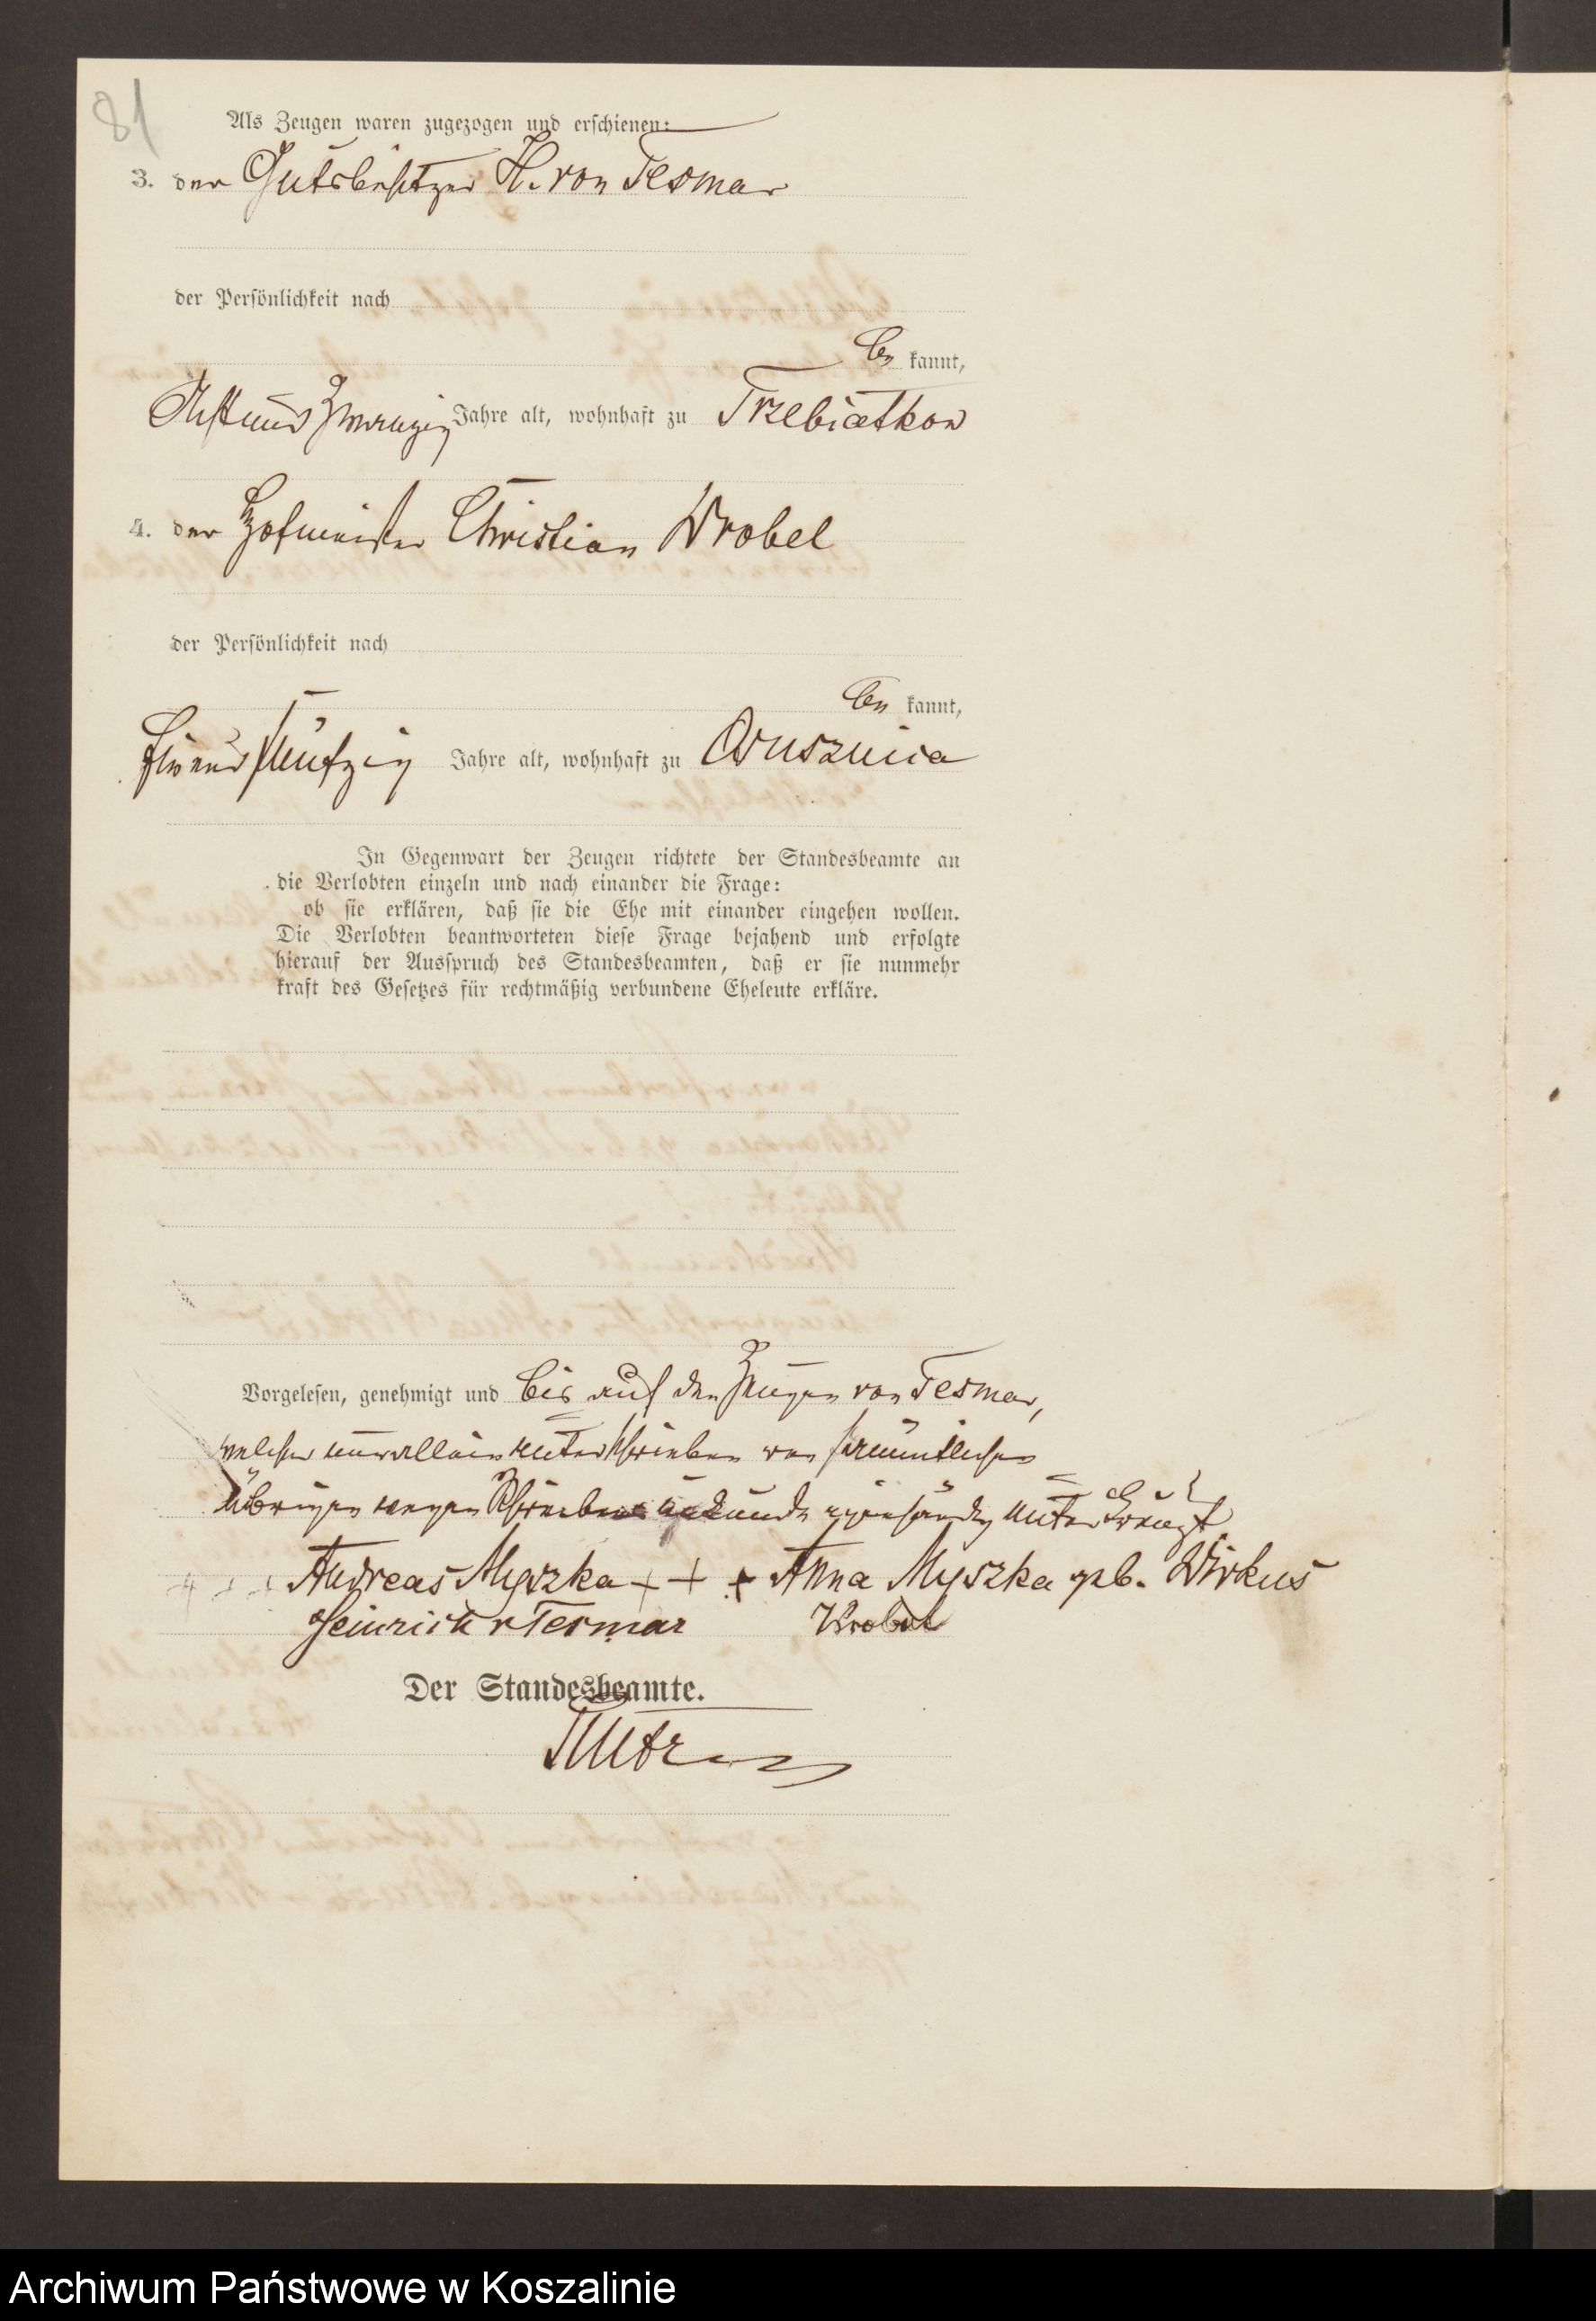 81
Als Zeugen waren zugezogen und erschienen:
3. der Gutsbesitzer H. von Tesmar
der Persönlichkeit nach
be kannt,
Acht und zwanzig Jahre alt, wohnhaft zu Trzebiatkow
4. der Hofmeister Christian Wrobel
der Persönlichkeit nach
be kannt,
fünfzig Jahre alt, wohnhaft zu
In Gegenwart der Zeugen richtete der Standesbeamte an
die Verlobten einzeln und nach einander die Frage:
ob sie erklären, daß sie die Ehe mit einander eingehen wollen.
Die Verlobten beantworteten diese Frage bejahend und erfolgte
hierauf der Ausspruch des Standesbeamten, daß er sie nunmehr
kraft des Gesetzes für rechtmäßig verbundene Eheleute erkläre.
Vorgelesen, genehmigt und bis auf den Zeugen von Tesmar,
welcher nur allein unterschrieben von sämmtlichen
Übrigen wegen Schreibens unkunde eigenhändig unterkreuzt
+ + + Andreas Myszka + + + Anna Myszka geb. Wirkus
Heinrich v Tesmar Wrobel
Der Standesbeamte.
Archiwum Państwowe w Koszalinie